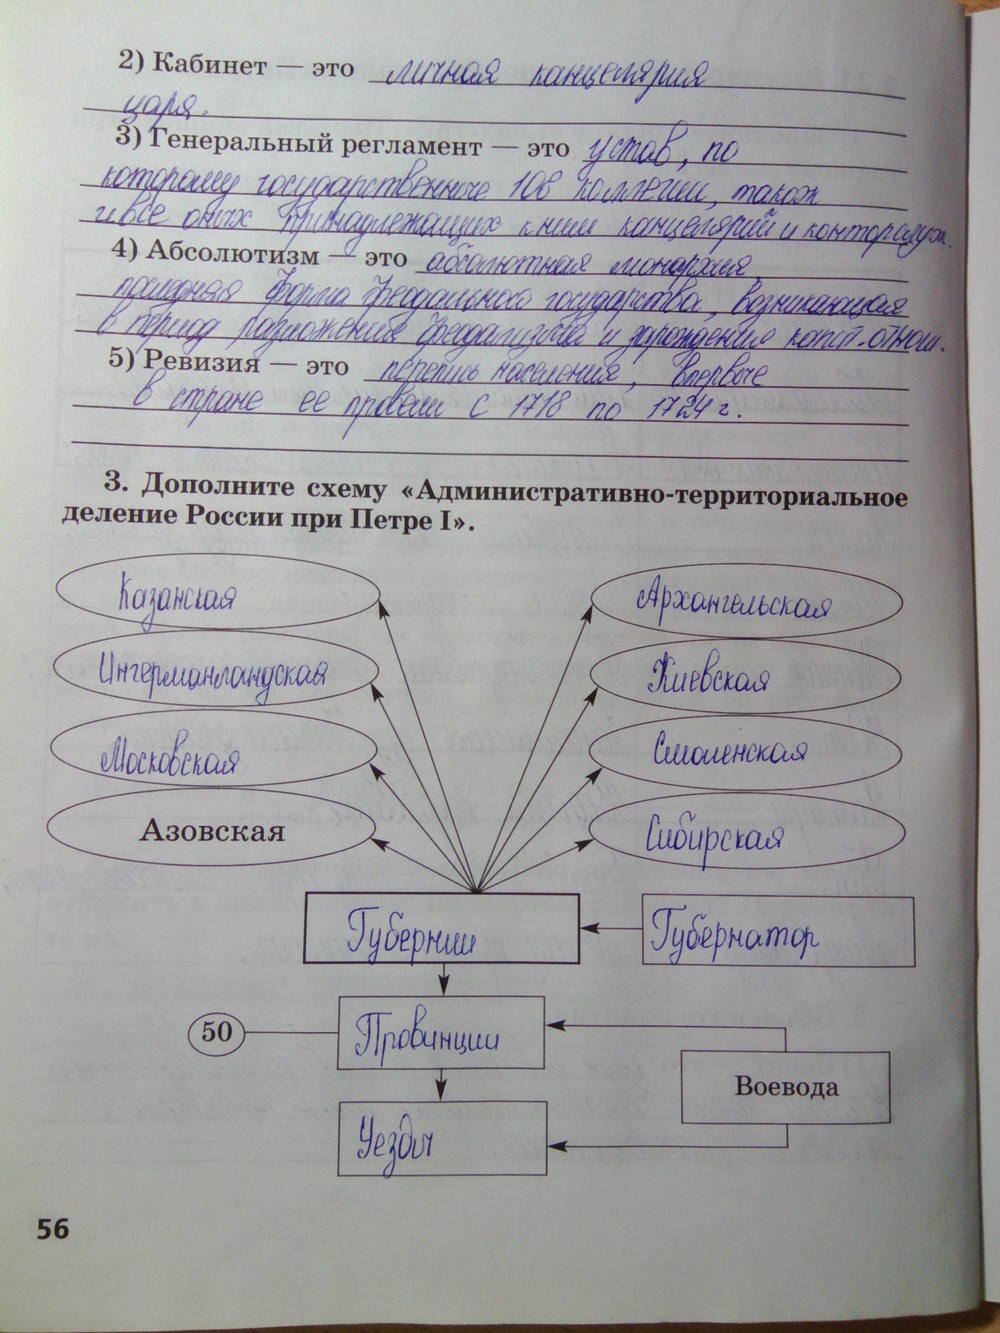 2) Кабинет — это личная канцелярия
царя.
3) Генеральный регламент — это устав, по
которому государственные коллегии, також
и все оных принадлежащих к ним канцелярий и контор служ.
4) Абсолютизм — это абсолютная монархия,
последняя форма феодального государства, возникающая
в период разложения феодализма и зарождения капит. отнош.
5) Ревизия — это перепись населения, впервые
в стране ее провели с 1718 по 1724 г.
3. Дополните схему «Административно-территориальное
деление России при Петре I».
Казанская
Архангельская
Ингерманландская
Киевская
Московская
Смоленская
Азовская
Сибирская
Губернии
Губернатор
50
Провинции
Воевода
Уезды
56